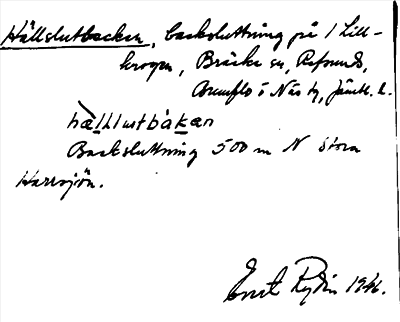 Hällslutbacken, backsluttning på 1 Lill-
krogen, Bräcke sn, Refsunds,
Brunflo o Näs tg, Jämtl. l.
hällustbakan
Backsluttning 500 m N Stora
Harrsjön.
Ernst Rydin 1946.